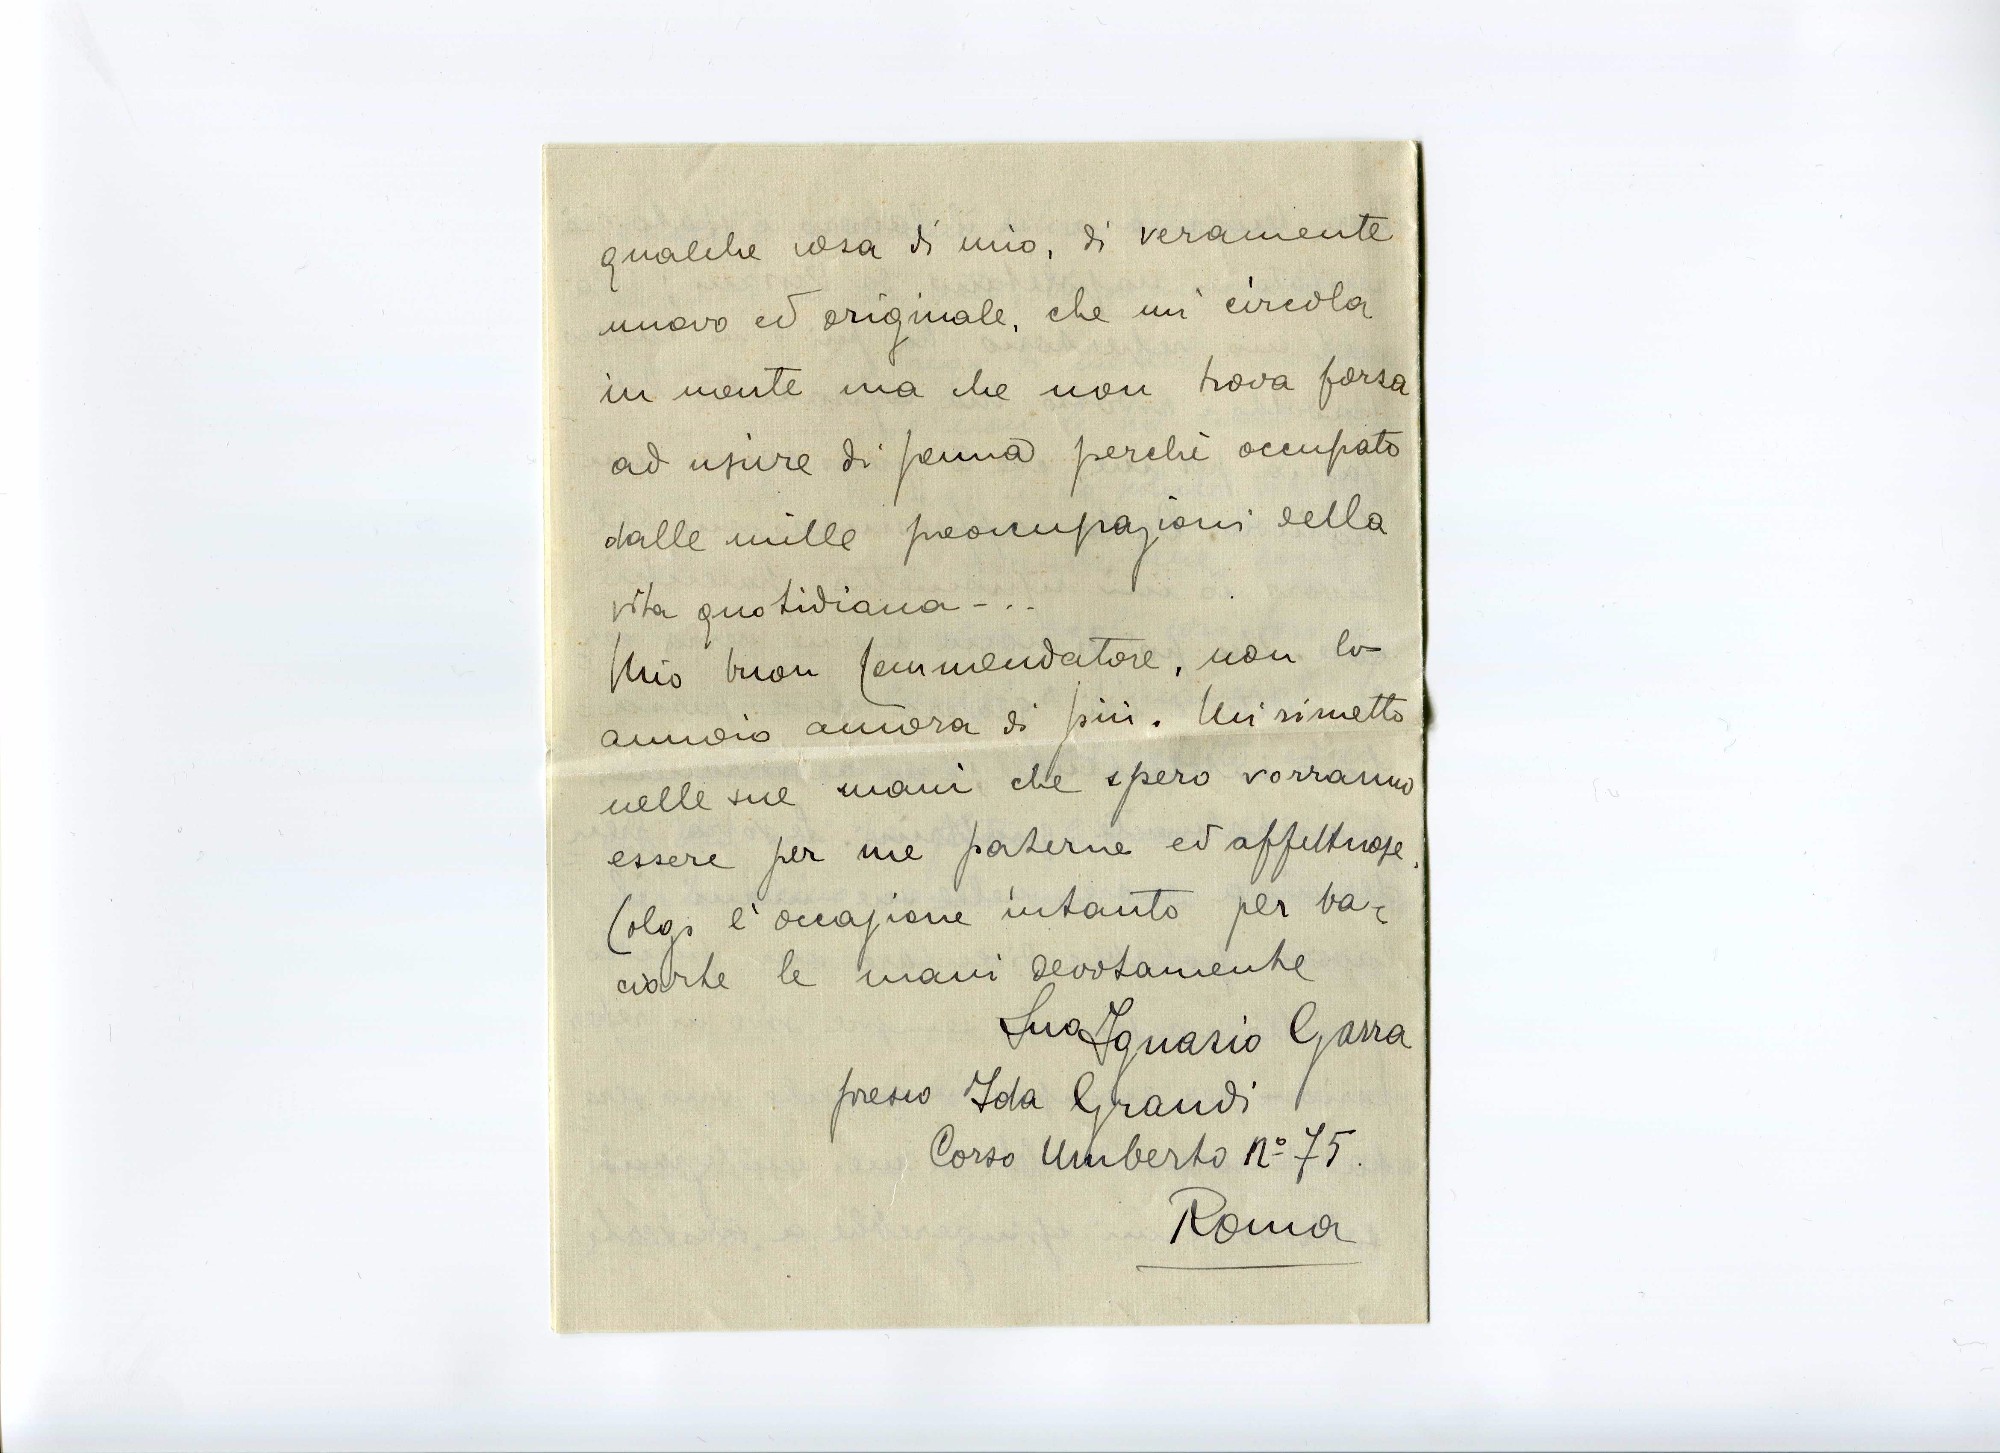 qualche cosa di mio, di veramente
nuovo ed originale, che mi circola
in mente ma che non trova forza
ad uscire di penna perchè occupato
dalle mille preoccupazioni della
vita quotidiana - ..
Mio buon Commendatore, non lo
annoio ancora di più. Mi rimetto
nelle sue mani che spero vorranno
essere per me paterne ed affettuose.
Colgo l'occasione intanto per ba-
ciarle le mani devotamente
Suo Ignazio
presso Ida Grandi
Corso Umberto No 75.
Roma